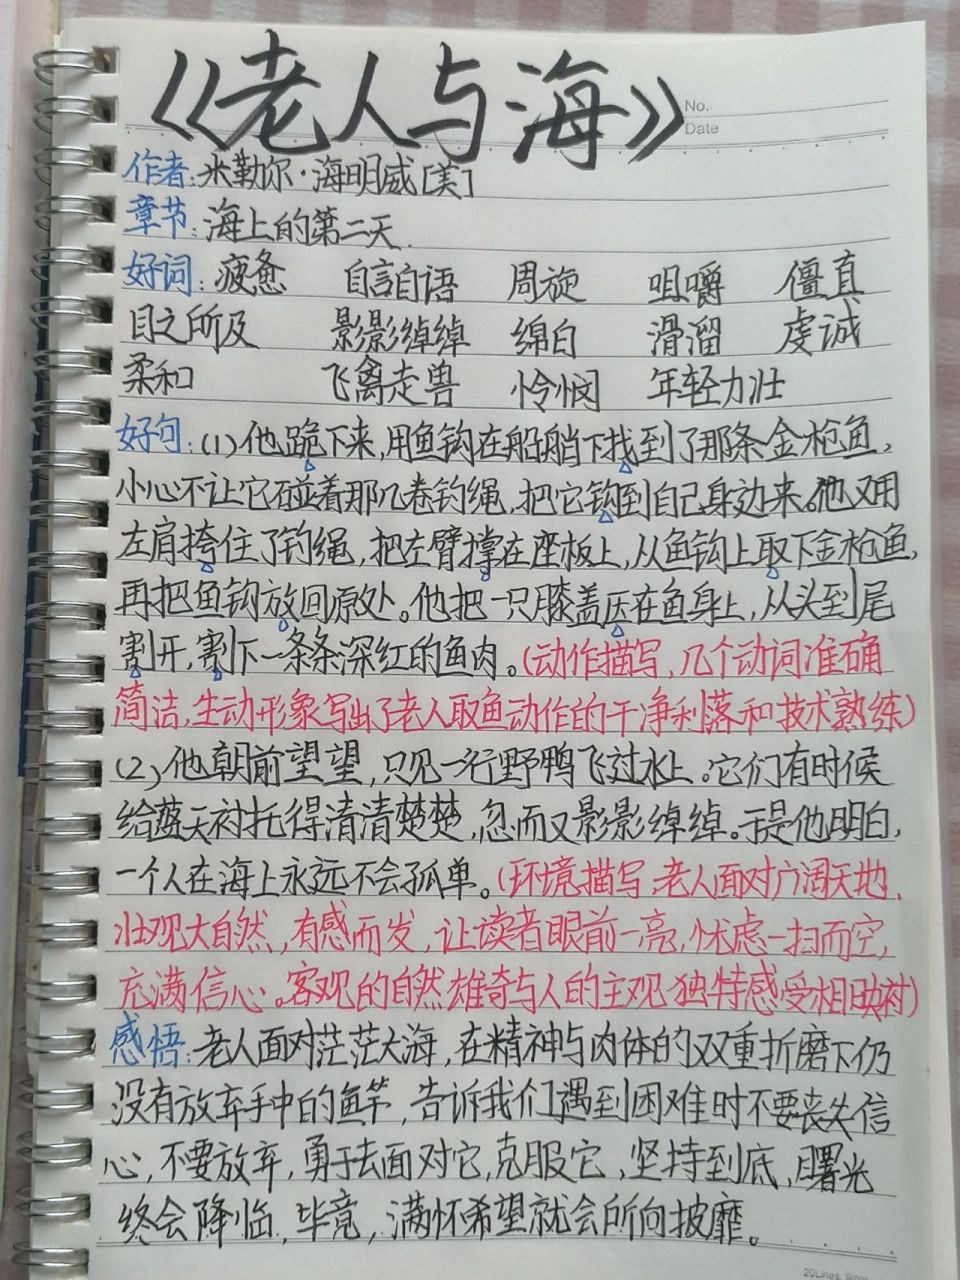 《老人与海》
No.
Date
作者:米勒尔·海明威[美]
章节:海上的第二天.
好词:疲惫 自言自语 周旋 咀嚼 僵直
目之所及 影影绰绰 绵白 滑溜 虔诚
柔和 飞禽走兽 怜悯 年轻力壮
好句:(1)他跪下来,用鱼钩在船艄下找到了那条金枪鱼,
小心不让它碰着那几卷钓绳,把它钩到自己身边来。他又用
左肩挎住了钓绳,把左臂撑在座板上,从鱼钩上取下金枪鱼,
再把鱼钩放回原处。他把一只膝盖压在鱼身上,从头到尾
割开,割下一条条深红的鱼肉。(动作描写,几个动词准确
简洁,生动形象写出了老人取鱼动作的干净利落和技术熟练)
(2)他朝前望望,只见一行野鸭飞过水上。它们有时候
给蓝天衬托得清清楚楚,忽而又影影绰绰。于是他明白,
一个人在海上永远不会孤单。(环境描写,老人面对广阔天地,
壮观大自然,有感而发,让读者眼前一亮,忧虑一扫而空,
充满信心。客观的自然雄奇与人的主观独特感受相助衬)
感悟:老人面对茫茫大海,在精神与肉体的双重折磨下仍
没有放弃手中的鱼竿,告诉我们遇到困难时不要丧失信
心,不要放弃,勇于去面对它,克服它,坚持到底,曙光
终会降临,毕竟,满怀希望就会所向披靡。
20Lines, 9mm